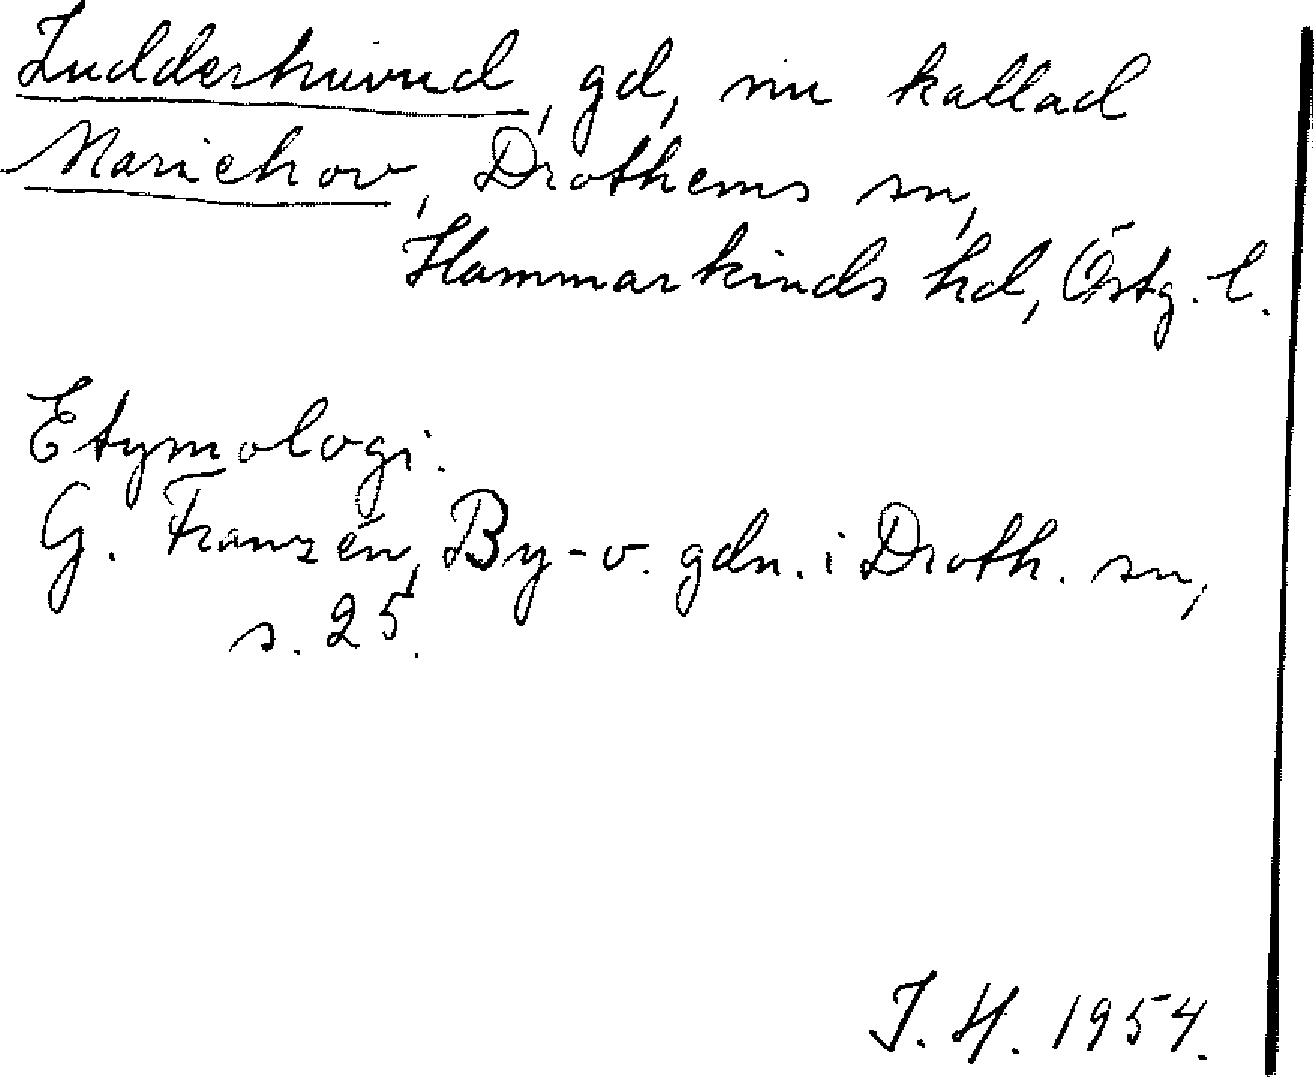 Ludderhuvud, gd, nu kallad
Mariehov, Drothems sn,
Hammarkinds hd, Östg. l.
Etymologi.
G. Franzén, By- o. gdn. i Droth. sn,
s. 25.
J. H. 1954.